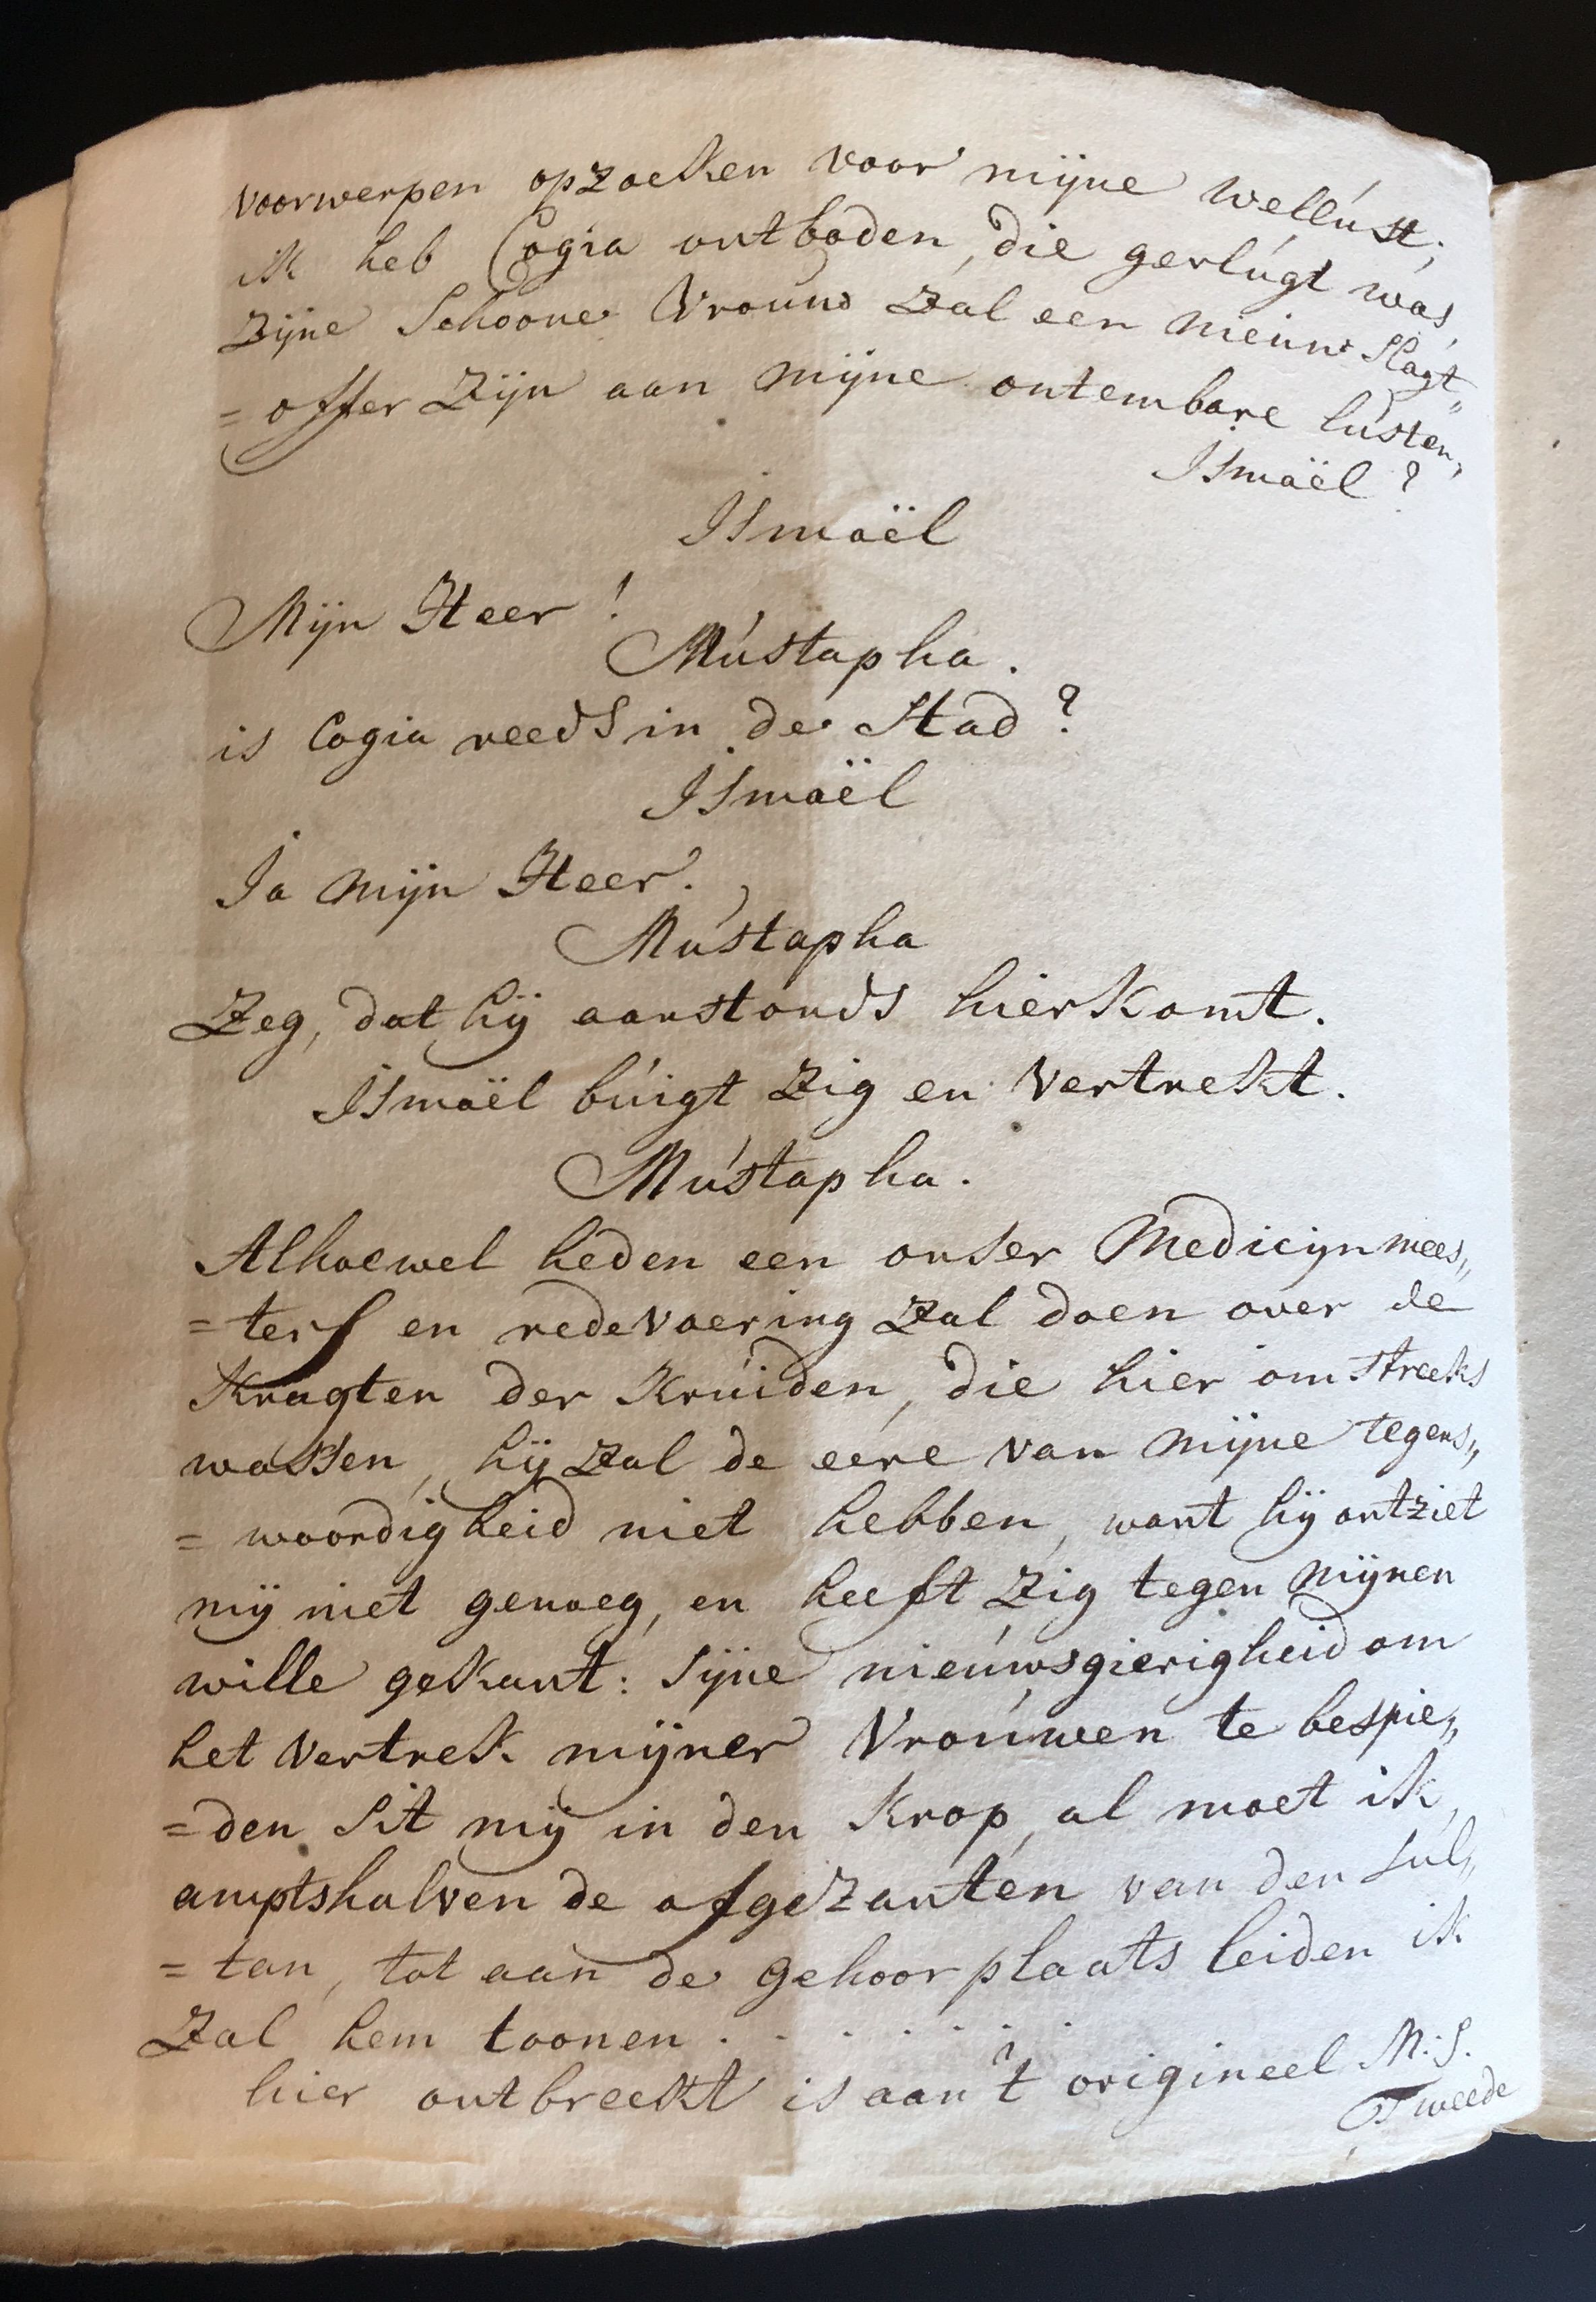 voorwerpen opzoeken voor mijne wellúst;
ik heb Cogia ontboden, die gerlúgt was,
zijne Schoone Vrouw zal een nieuw Slagt„
= offer Zijn aan mijne ontembare lusten,
Ismaël?
Ismaël
Mijn Heer!
Mústapha.
is Cogia reeds in de Stad?
Ismaël
Ja mijn Heer.
Mústapha
Zeg, dat hij aanstonds hier komt.
Ismaël búigt Zig en vertrekt.
Mústapha.
Alhoewel heden een onser Medicijn mees„
= ters en redevoering zal doen over de
Kragten der Krúiden, die hier omstreeks
wassen, hij zal de eere van mijne tegens„
= woordigheid niet hebben, want hij ontziet
mij niet genoeg, en heeft Zig tegen mijnen
wille gekant: Sijne nieúwsgierigheid om
het vertrek mijner Vroúwen te bespie„
= den Sit mij in den Krop, al moet ik,
amptshalven de afgezanten van den Sul„
= tan, tot aan de gehoorplaats leiden ik
Zal hem toonen . . . . . . .
hier ontbreekt is aan 't origineel M:S.
Tweede